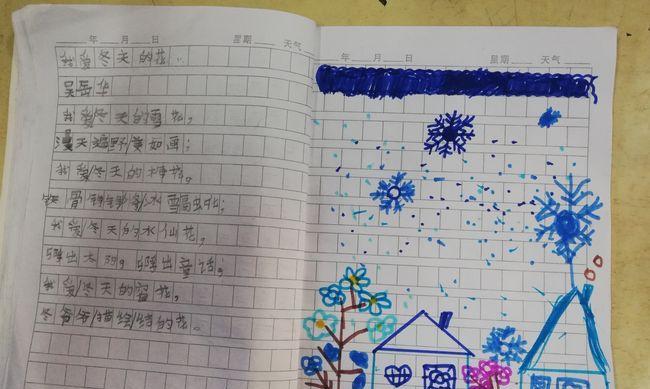 年 月 日 星期 天气
我爱冬天的花
吴岳华
我爱冬天的雪花,
漫天遍野美如画;
我爱冬天的梅花,
骨铮铮 冰雪
我爱冬天的水仙花,
弹出太阳,弹出童话;
我爱冬天的窗花,
冬爷爷描绘结的花。
年 月 日 星期 天气